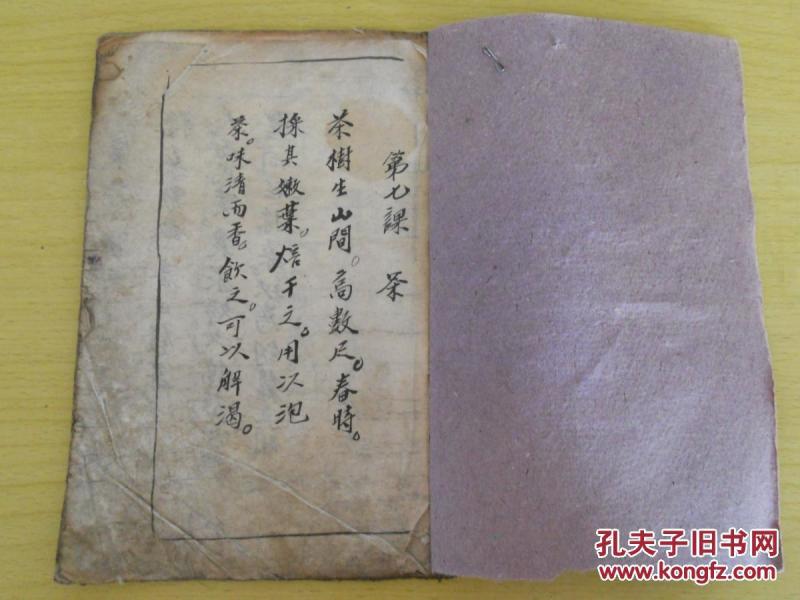 第七課 茶
茶樹生山間。高數尺。春時。
採其嫩葉。焙干之。用以泡
茶。味清而香。飲之。可以解渴。
孔夫子旧书网
www.kongfz.com